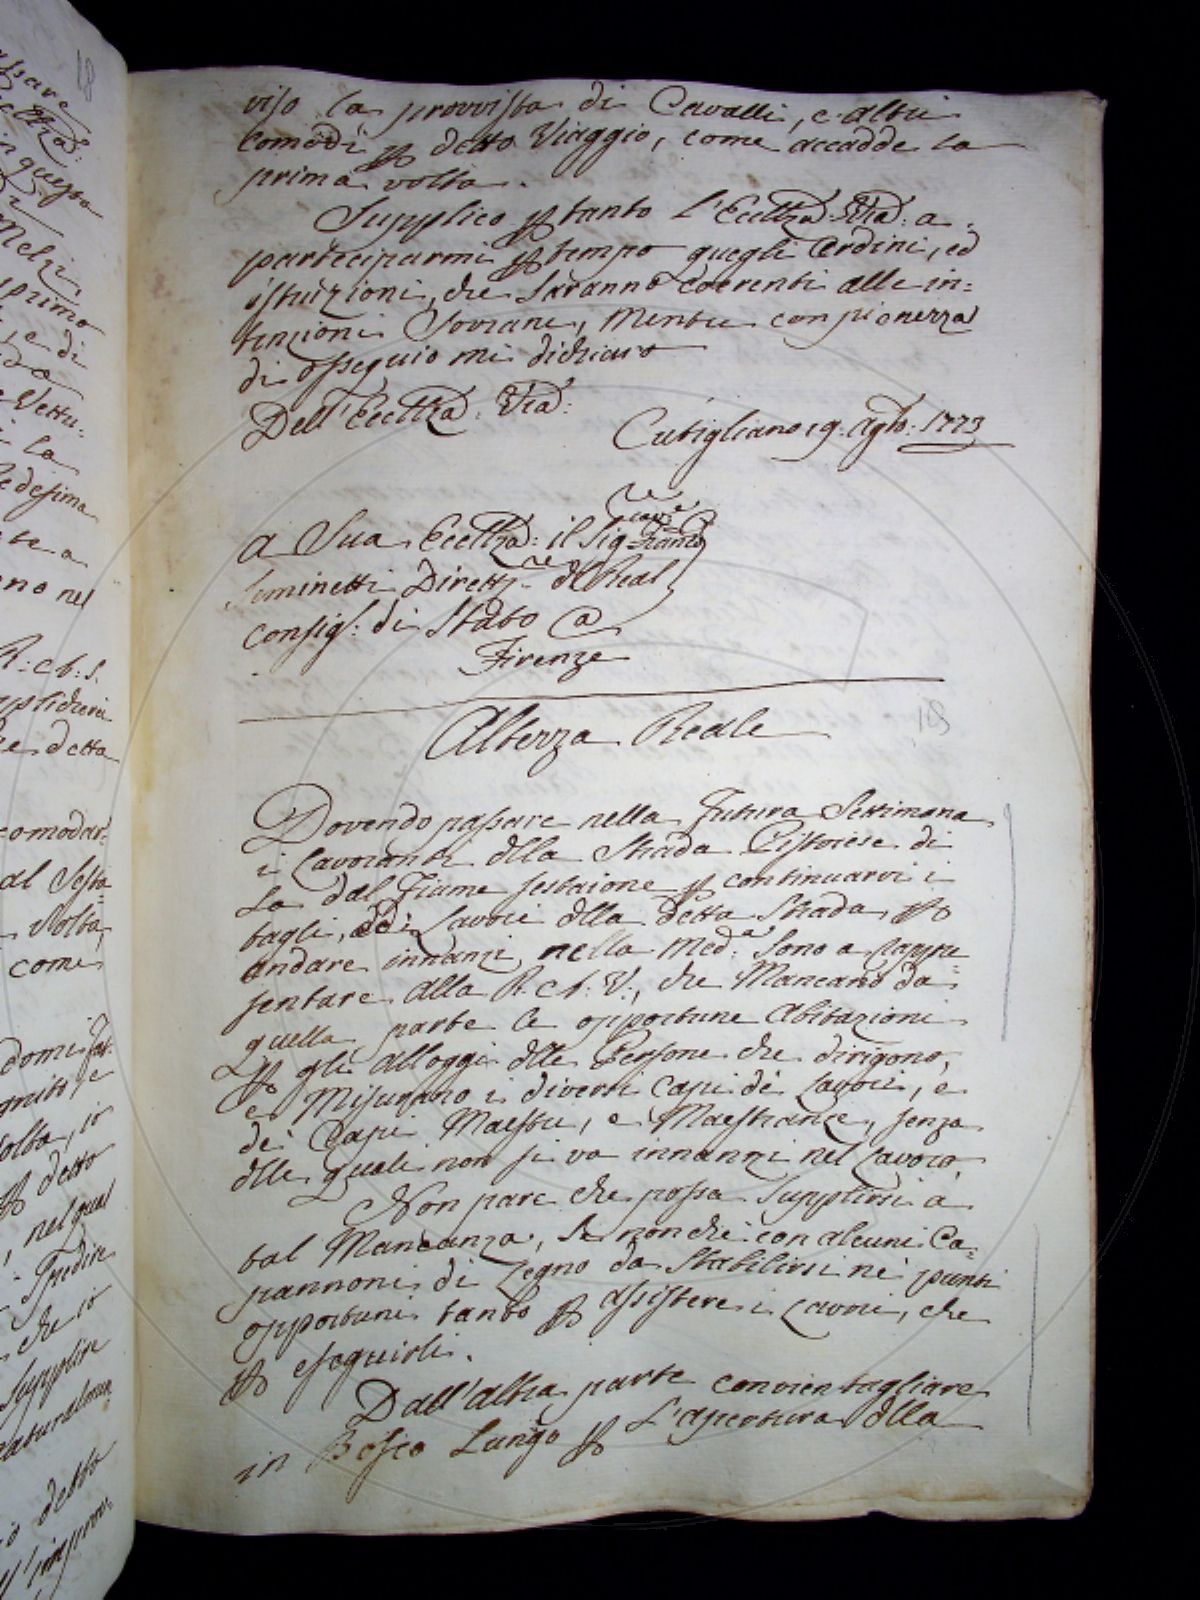 18
viso la provvista di Cavalli, e altri
Comodi p detto Viaggio, come accadde la
prima volta.
Supplico p tanto l'Ecctza Vra: a
parteciparmi p tempo quegli Ordini, ed
istruzioni, che saranno coerenti alle in=
tenzioni Sovrane, mentre con pienezza
di ossequio mi dichiaro
Dell'Ecctza: Vra:
Cutigliano 19: Agto: 1773
A Sua Ecctza: il Sigre Cavre Franco
Seminetti Dirett:re del Real
Consig: di Stato @
Firenze
Altezza Reale
18
Dovendo passare nella futura Settimana
i Lavoranti dlla Strada Pistoiese di
La dal Fiume Sestaione p continuarvi i
tagli, ed i Lavori dlla detta Strada p
andare innanzi nella Meda: sono a rappre
sentare alla R: A: V:, che Mancano da
quella parte le opportune Abitazioni
p gli alloggi dlle Persone che dirigono,
e Misurano i diversi Capi dè Lavori, e
dè Capi Maestri, e Maestranze, senza
dlle quali non si va innanzi nel Lavoro.
Non pare che possa supplirsi à
tal Mancanza, se non che con alcuni Ca=
pannoni di Legno da Stabilirsi nè punti
opportuni tanto p assistere i Lavori, che
p eseguirli.
Dall'altra parte convien tagliare
in Bosco Lungo p l'apertura dlla